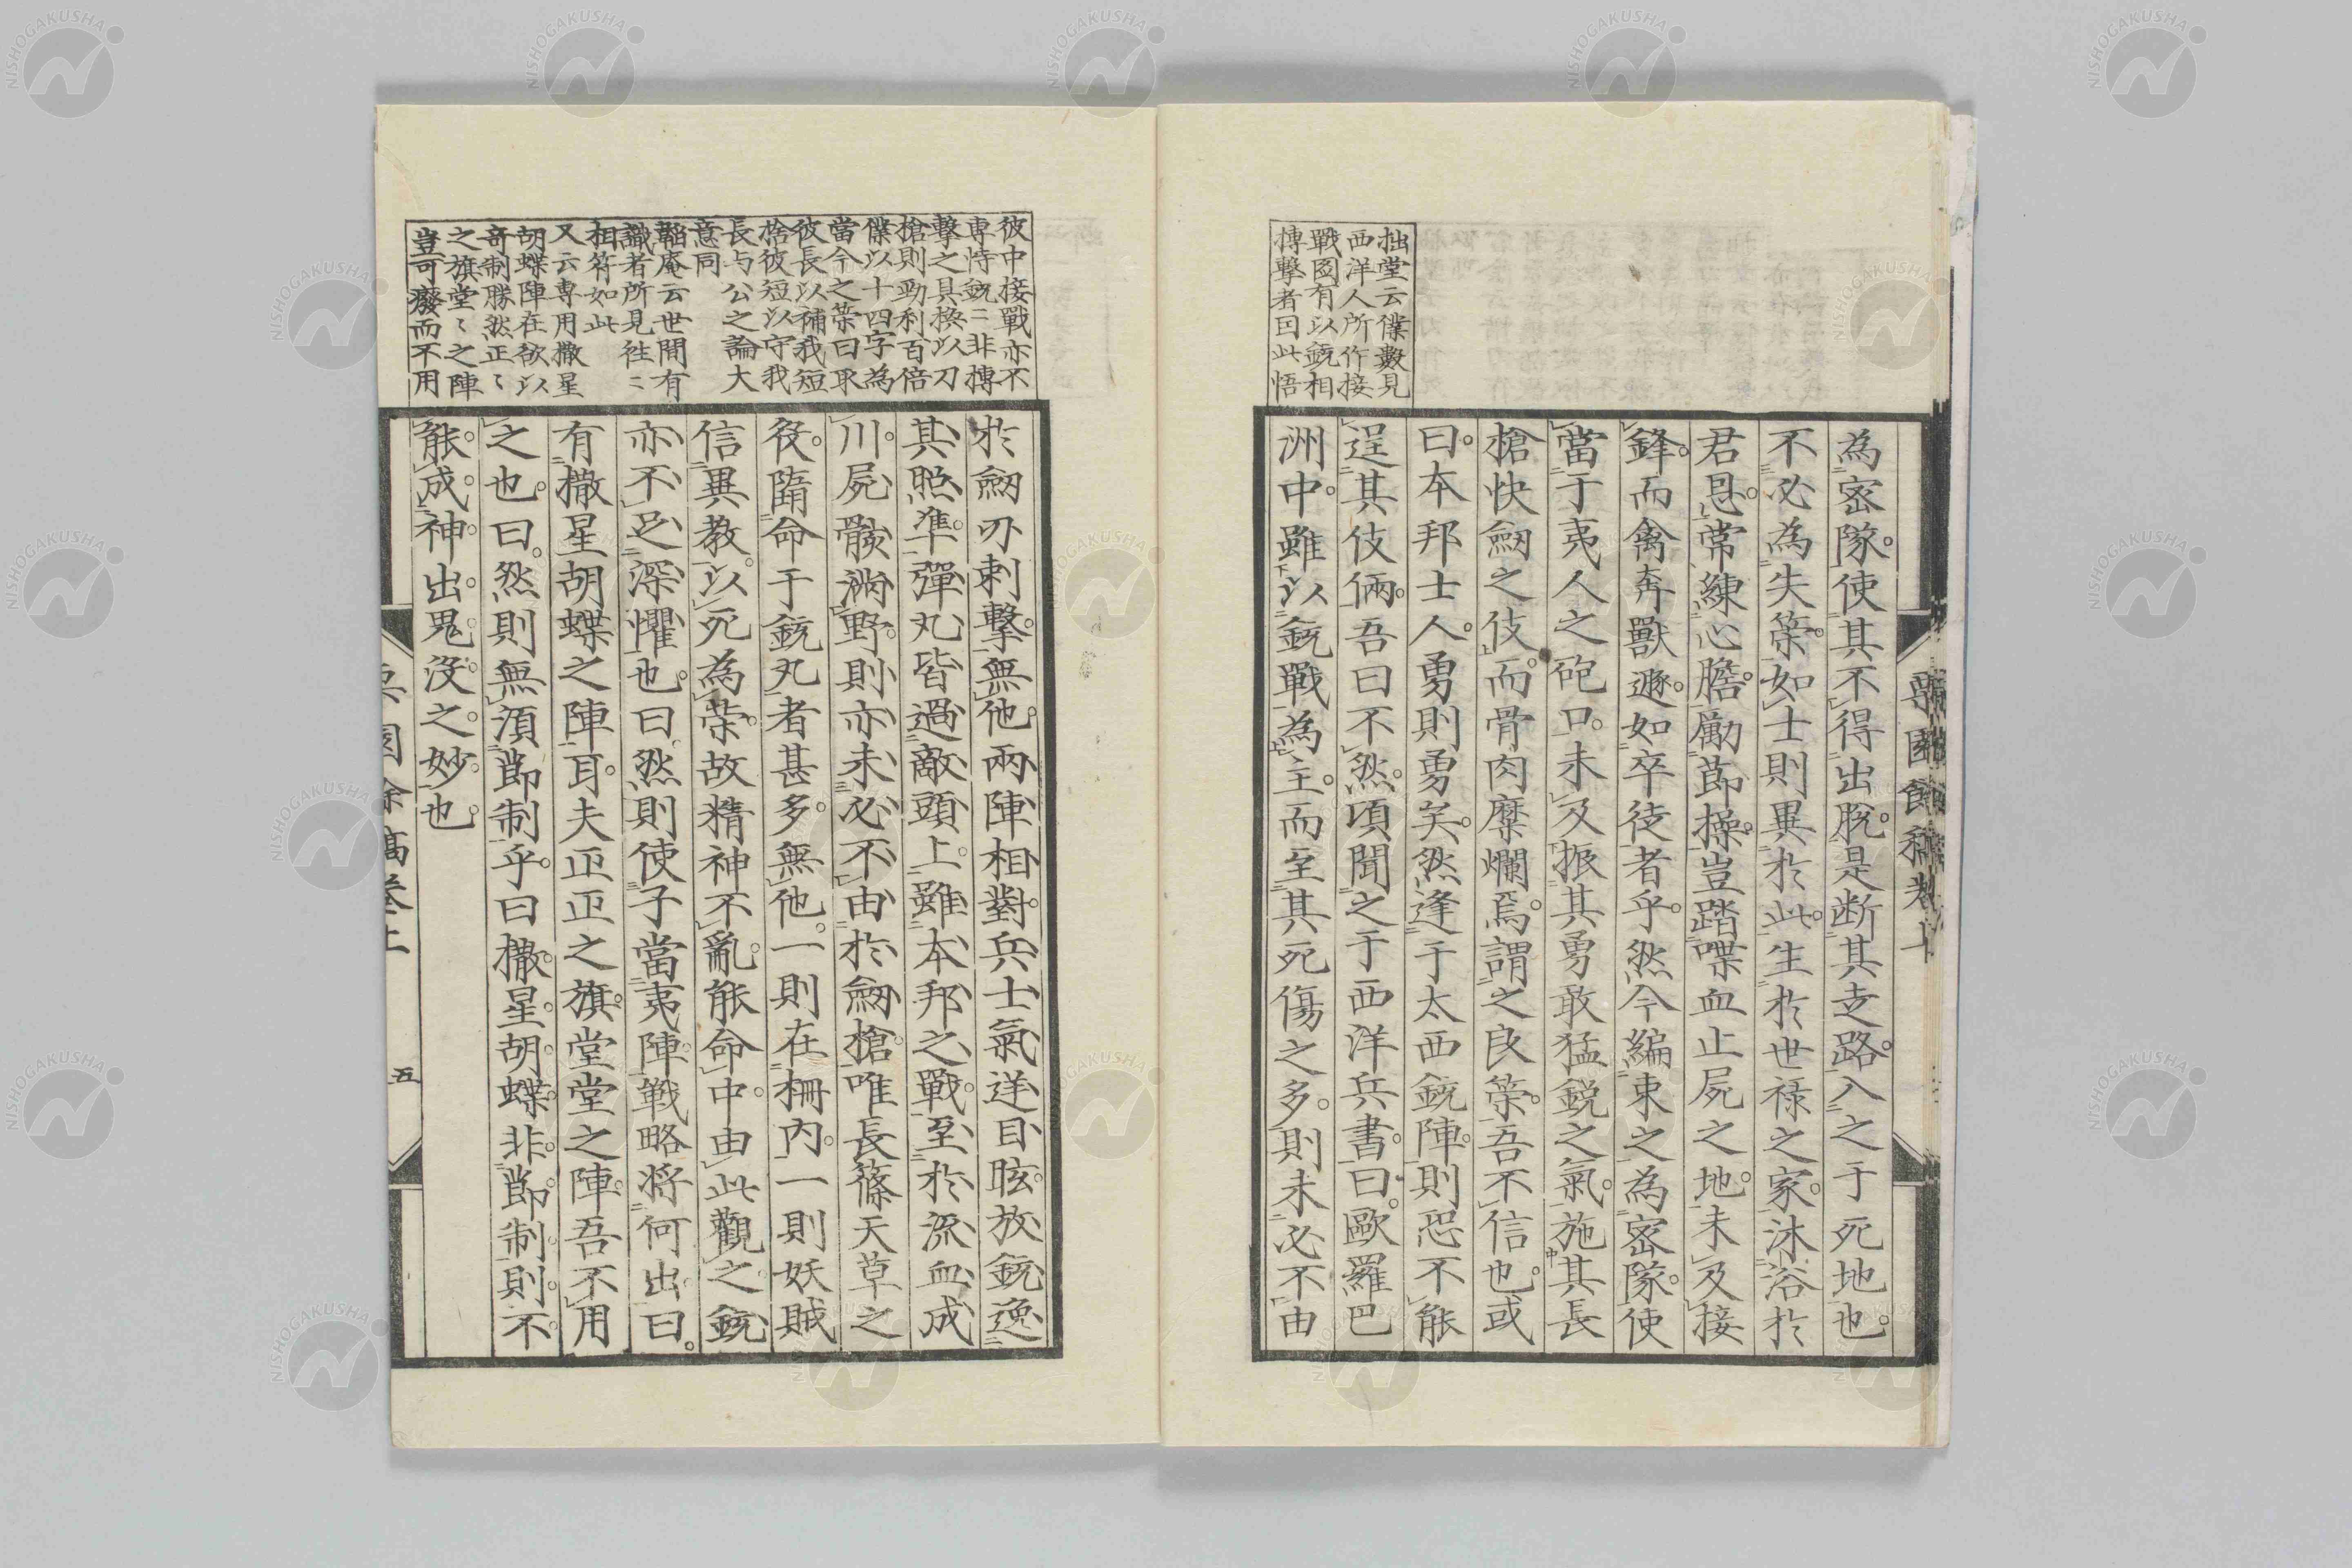 拙堂云僕數見
西洋人所作接
戰圖有以銃相
搏擊者因此悟
為密隊。使其不得出脫。是断其走路。入之于死地也。
不必為失策。如士則異於此。生於世禄之家。沐浴於
君恩。常練心膽。勵節操。豈踏喋血止屍之地。未及接
鋒。而禽奔獸遯。如卒徒者乎。然今編束之為密隊。使
當于夷人之砲口。未及振其勇敢猛鋭之氣。施其長
槍快劒之伎。而骨肉糜爛焉。謂之良策。吾不信也。或
曰。本邦士人。勇則勇矣。然逢于太西銃陣。則恐不能
逞其伎倆。吾曰不然。頃聞之于西洋兵書。曰。歐羅巴
洲中。雖以銃戰為主。而至其死傷之多。則未必不由
彼中接戰亦不
専恃銃々非搏
擊之具換以刀
槍則勁利百倍
僕以十四字為
當今之策曰取
彼長以補我短
捨彼短以守我
長与公之論大
意同
韞庵云世間有
識者所見徃々
相符如此
又云専用撒星
胡蝶陣在欲以
奇制勝然正々
之旗堂々之陣
豈可癈而不用
於劒刃刺擊。無他。兩陣相對。兵士氣逆目眩。放銃逸
其照準。彈丸皆過敵頭上。雖本邦之戰。至於流血成
川。屍骸滿野。則亦未必不由於劒槍。唯長篠天草之
役。隕命于銃丸者甚多。無他。一則在柵内。一則妖賊
信異教。以死為榮。故精神不亂。能命中。由此觀之。銃
亦不足深懼也。曰。然則使子當夷陣。戦略將何出。曰。
有撒星胡蝶之陣耳。夫正正之旗。堂堂之陣。吾不用
之也。曰。然則無須節制乎。曰撒星。胡蝶。非節制。則不
能成神出鬼没之妙也。
五